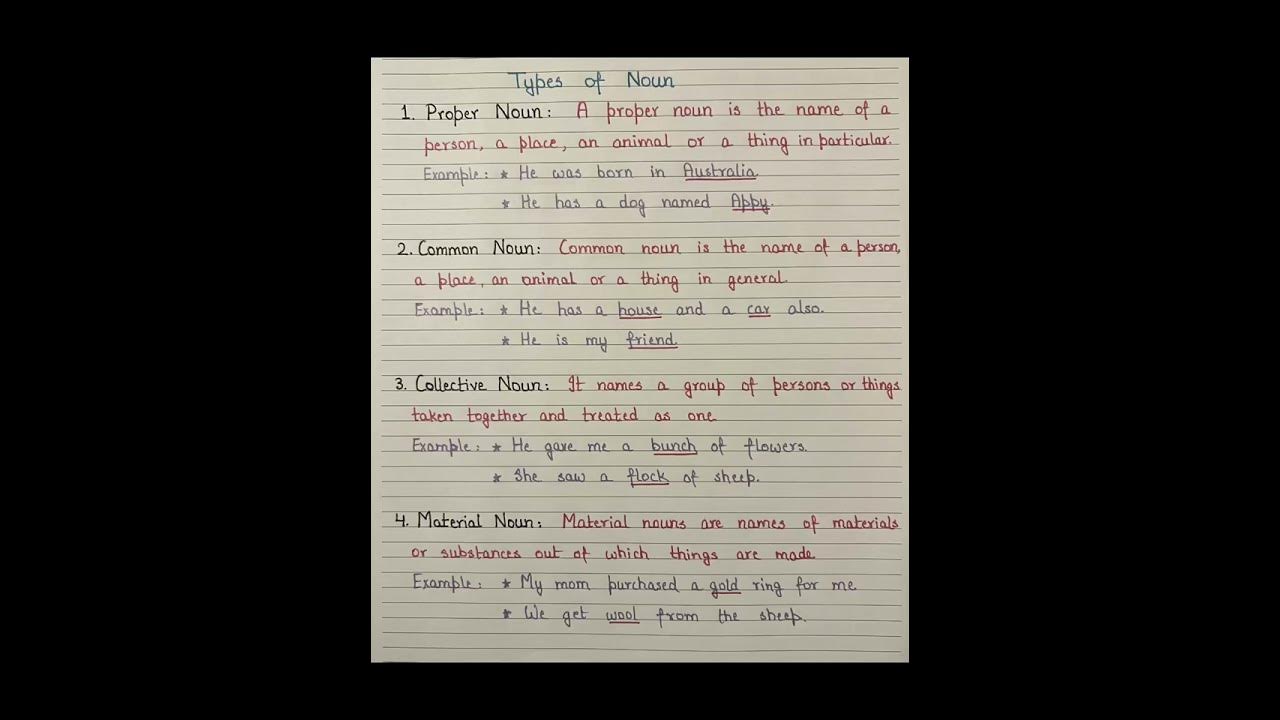 Types of Noun
1. Proper Noun: A proper noun is the name of a
person, a place, an animal or a thing in particular.
Example: * He was born in Australia.
* He has a dog named Appy.
2. Common Noun: Common noun is the name of a person,
a place, an animal or a thing in general.
Example: * He has a house and a car also.
* He is my friend.
3. Collective Noun: It names a group of persons or things
taken together and treated as one
Example: * He gave me a bunch of flowers.
* She saw a flock of sheep.
4. Material Noun: Material nouns are names of materials
or substances out of which things are made
Example: * My mom purchased a gold ring for me
* We get wool from the sheep.